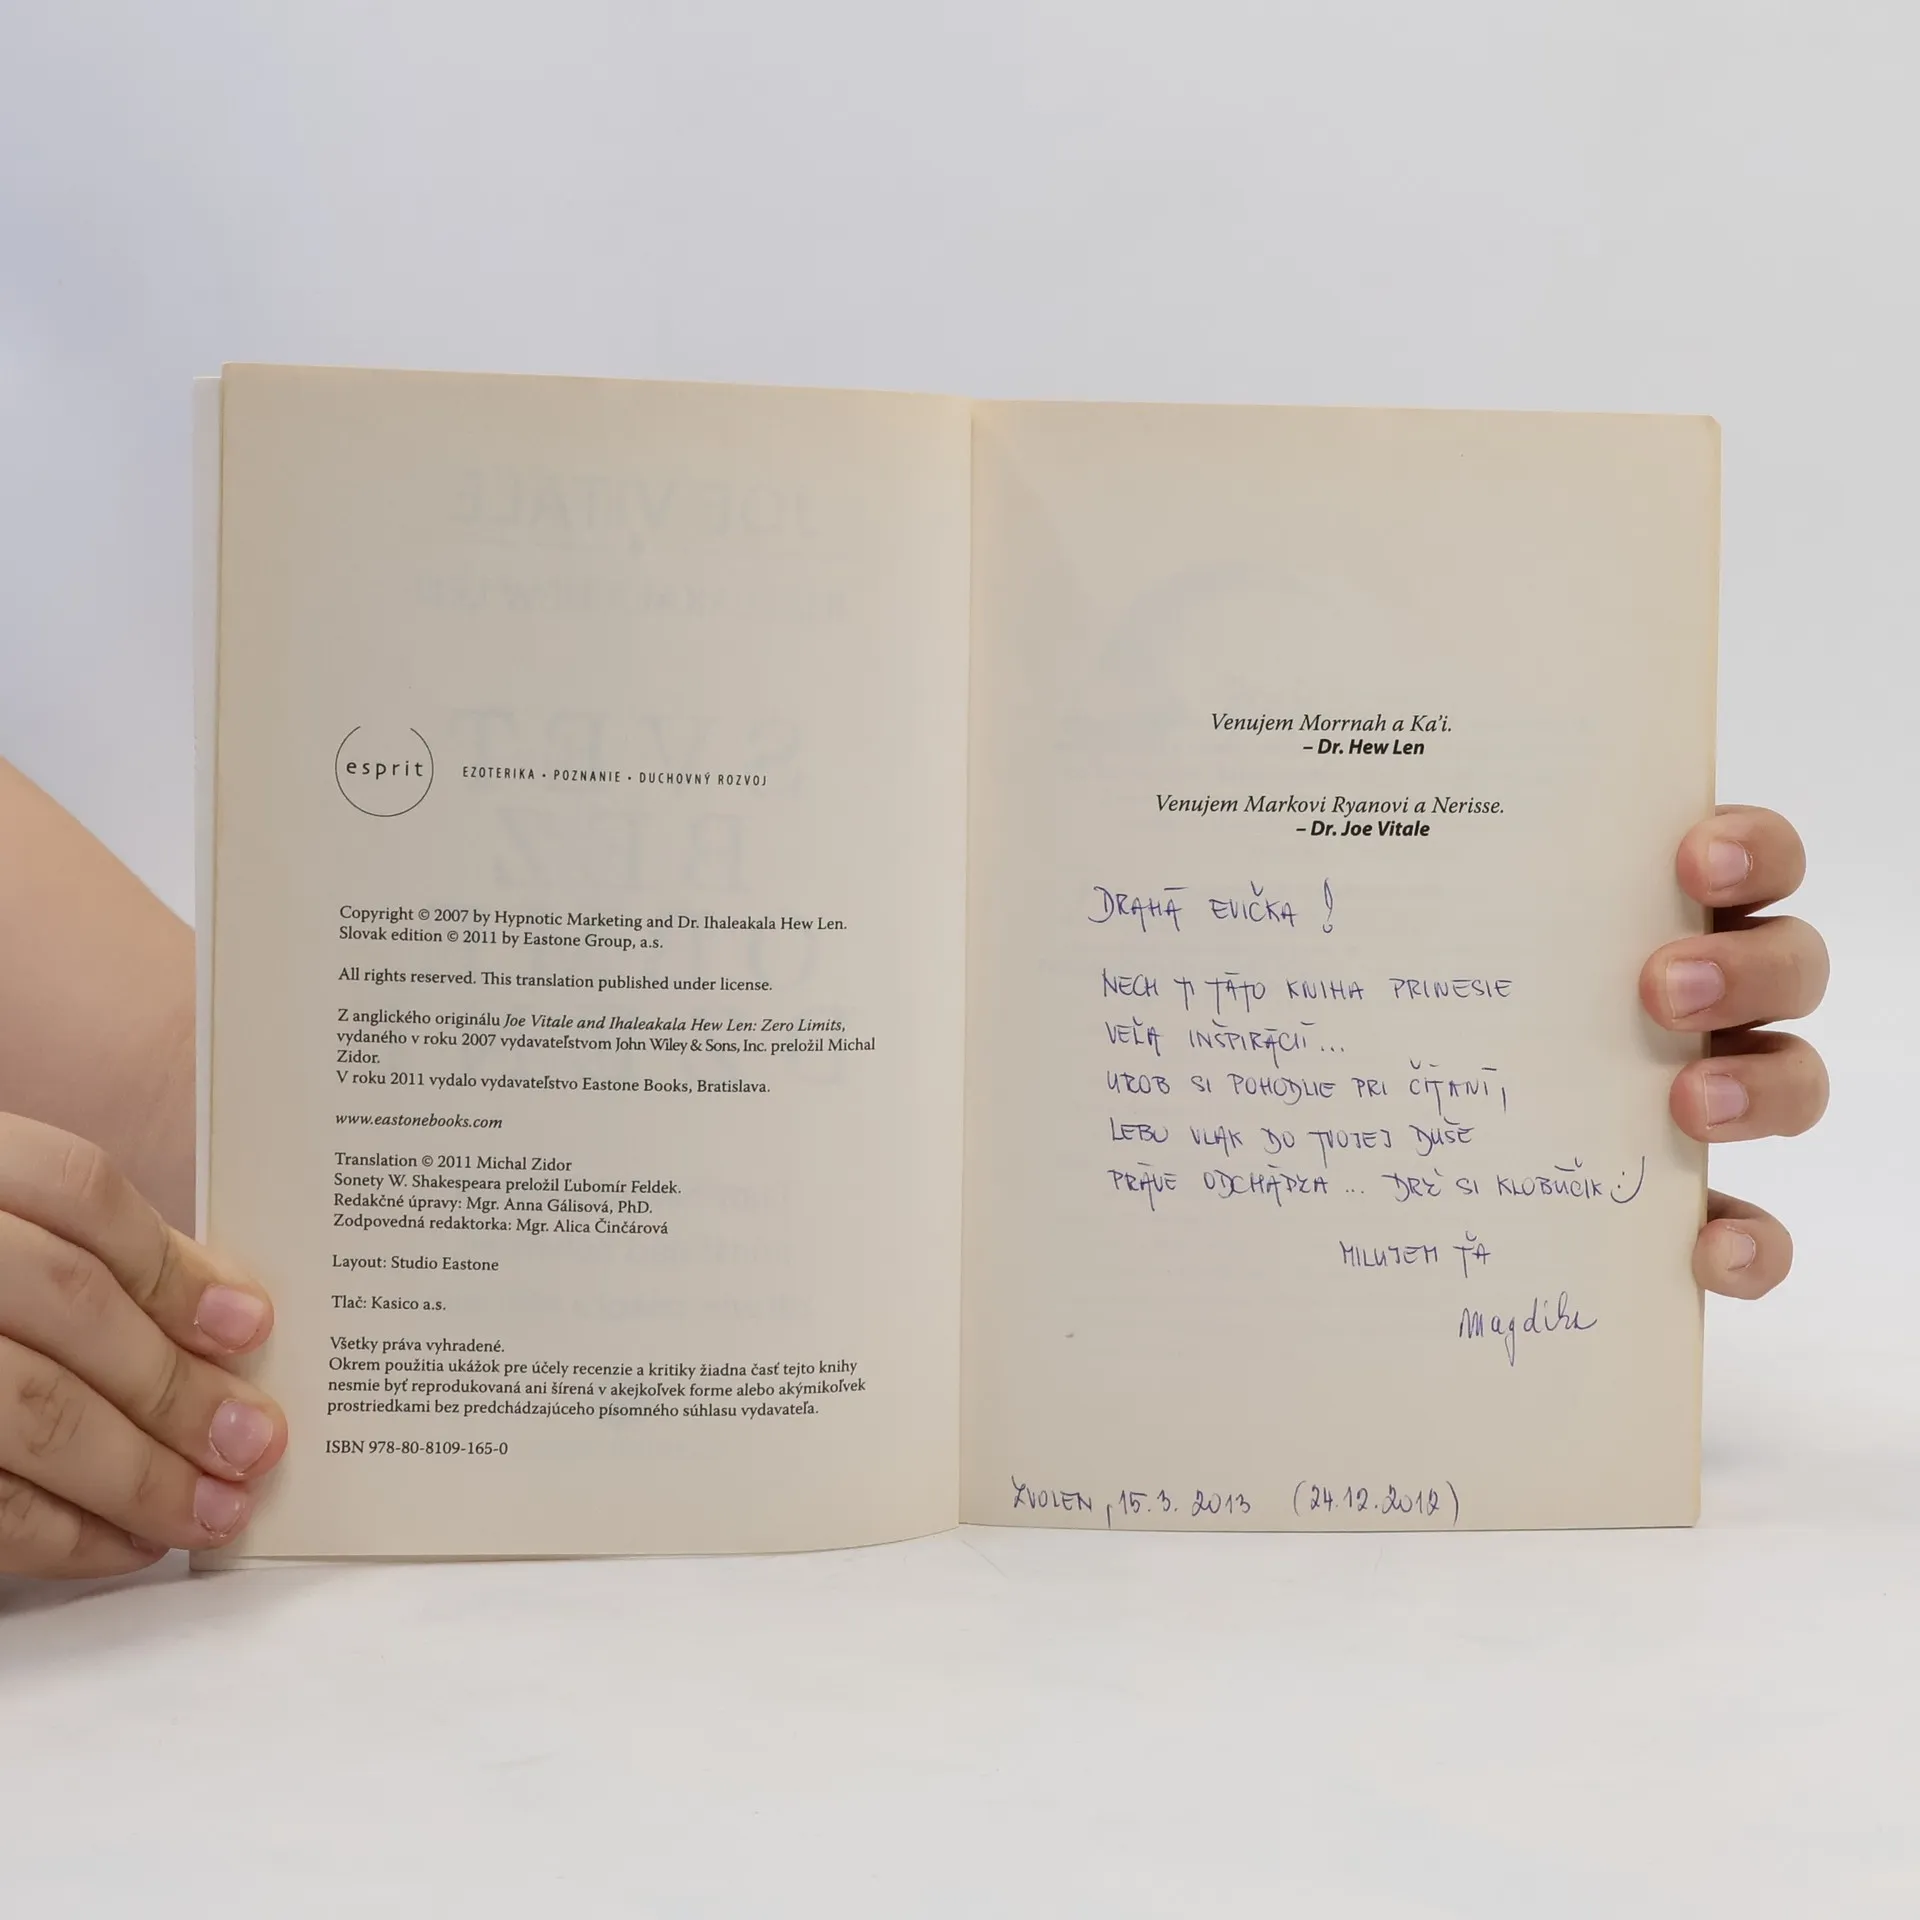 esprit
EZOTERIKA • POZNANIE • DUCHOVNÝ ROZVOJ
Copyright © 2007 by Hypnotic Marketing and Dr. Ihaleakala Hew Len.
Slovak edition © 2011 by Eastone Group, a.s.
All rights reserved. This translation published under license.
Z anglického originálu Joe Vitale and Ihaleakala Hew Len: Zero Limits,
vydaného v roku 2007 vydavateľstvom John Wiley & Sons, Inc. preložil Michal
Zidor.
V roku 2011 vydalo vydavateľstvo Eastone Books, Bratislava.
www.eastonebooks.com
Translation © 2011 Michal Zidor
Sonety W. Shakespeara preložil Ľubomír Feldek.
Redakčné úpravy: Mgr. Anna Gálisová, PhD.
Zodpovedná redaktorka: Mgr. Alica Činčárová
Layout: Studio Eastone
Tlač: Kasico a.s.
Všetky práva vyhradené.
Okrem použitia ukážok pre účely recenzie a kritiky žiadna časť tejto knihy
nesmie byť reprodukovaná ani šírená v akejkoľvek forme alebo akýmikoľvek
prostriedkami bez predchádzajúceho písomného súhlasu vydavateľa.
ISBN 978-80-8109-165-0
Venujem Morrnah a Ka'i.
– Dr. Hew Len
Venujem Markovi Ryanovi a Nerisse.
– Dr. Joe Vitale
DRAHÁ EVIČKA !
NECH TI TÁTO KNIHA PRINESIE
VEĽA INŠPIRÁCIÍ...
UROB SI POHODLIE PRI ČÍTANÍ,
LEBO VLAK DO TVOJEJ DUŠE
PRÁVE ODCHÁDZA ... DRŽ SI KLOBÚČIK :)
MILUJEM ŤA
Magdika
ZVOLEN, 15. 3. 2013 (24.12.2012)